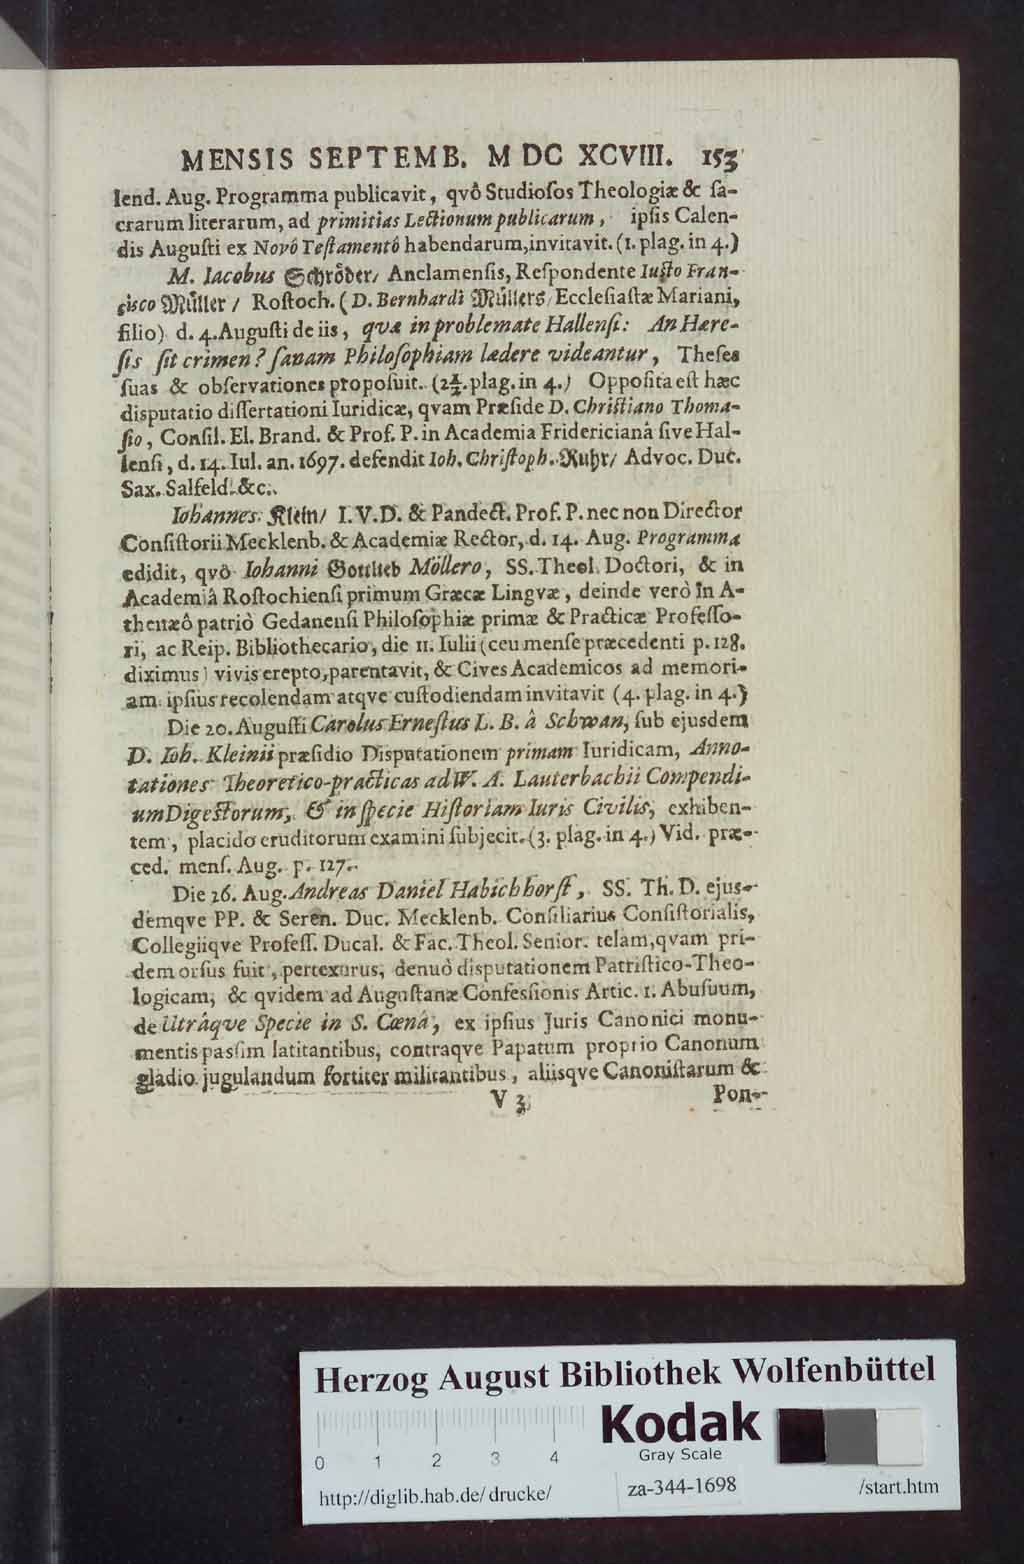 MENSIS SEPTEMB. M DC XCVIII. 153
lend. Aug. Programma publicavit, qvô Studioſos Theologiæ & ſa-
crarum literarum, ad primitias Lectionum publicarum, ipſis Calen-
dis Auguſti ex Novô Teſtamentô habendarum, invitavit. (1. plag. in 4.)
M. Iacobus Schröder/ Anclamenſis, Reſpondente Iuſto Fran-
ciſco Müller / Roſtoch. (D. Bernhardi Müllers/ Eccleſiaſtæ Mariani,
filio) d. 4. Auguſti de iis, qvæ in problemate Hallenſi: An Hære-
ſis ſit crimen? ſanam Philoſophiam lædere videantur, Theſes
ſuas & obſervationes propoſuit. (2½. plag. in 4.) Oppoſita eſt hæc
disputatio diſſertationi Iuridicæ, qvam Præſide D. Chriſtiano Thoma-
ſio, Conſil. El. Brand. & Prof. P. in Academia Fridericianâ ſive Hal-
lenſi, d. 14. Iul. an. 1697. defendit Ioh. Chriſtoph. Ruhr/ Advoc. Duc.
Sax. Salfeld. &c.
Iohannes Klein/ I. V. D. & Pandect. Prof. P. nec non Director
Conſiſtorii Mecklenb. & Academiæ Rector, d. 14. Aug. Programma
edidit, qvô Iohanni Gottlieb Möllero, SS. Theol. Doctori, & in
Academiâ Roſtochienſi primum Græcæ Lingvæ, deinde verò in A-
thenæô patriô Gedanenſi Philoſophiæ primæ & Practicæ Profeſſo-
ri, ac Reip. Bibliothecario, die 11. Iulii (ceu menſe præcedenti p. 128.
diximus) vivis erepto, parentavit, & Cives Academicos ad memori-
am ipſius recolendam atqve cuſtodiendam invitavit (4. plag. in 4.)
Die 20. Auguſti Carolus Erneſtus L. B. â Schwan, ſub ejusdem
D. Ioh. Kleinii præſidio Disputationem primam Iuridicam, Anno-
tationes Theoretico-practicas ad W. A. Lauterbachii Compendi-
um Digeſtorum, & in ſpecie Hiſtoriam Iuris Civilis, exhiben-
tem, placido eruditorum examini ſubjecit. (3. plag. in 4.) Vid. præ-
ced. menſ. Aug. p. 127.
Die 26. Aug. Andreas Daniel Habichhorſt, SS. Th. D. ejus-
demqve PP. & Seren. Duc. Mecklenb. Conſiliarius Conſiſtorialis,
Collegiiqve Profeſſ. Ducal. & Fac. Theol. Senior. telam, qvam pri-
dem orſus fuit, pertexurus, denuò disputationem Patriſtico-Theo-
logicam, & qvidem ad Auguſtanæ Confeſsionis Artic. 1. Abuſuum,
de Utrâqve Specie in S. Cœnâ, ex ipſius Juris Canonici monu-
mentis paſsim latitantibus, contraqve Papatum proprio Canonum
gladio jugulandum fortiter militantibus, aliisqve Canoniſtarum &
V 3 Pon-
Herzog August Bibliothek Wolfenbüttel
Kodak
Gray Scale
0 1 2 3 4
http://diglib.hab.de/drucke/ za-344-1698 /start.htm